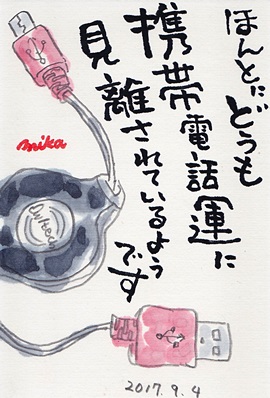 ほんとにどうも
携帯電話運に
見離されているよう
です
mika
2017.9.4